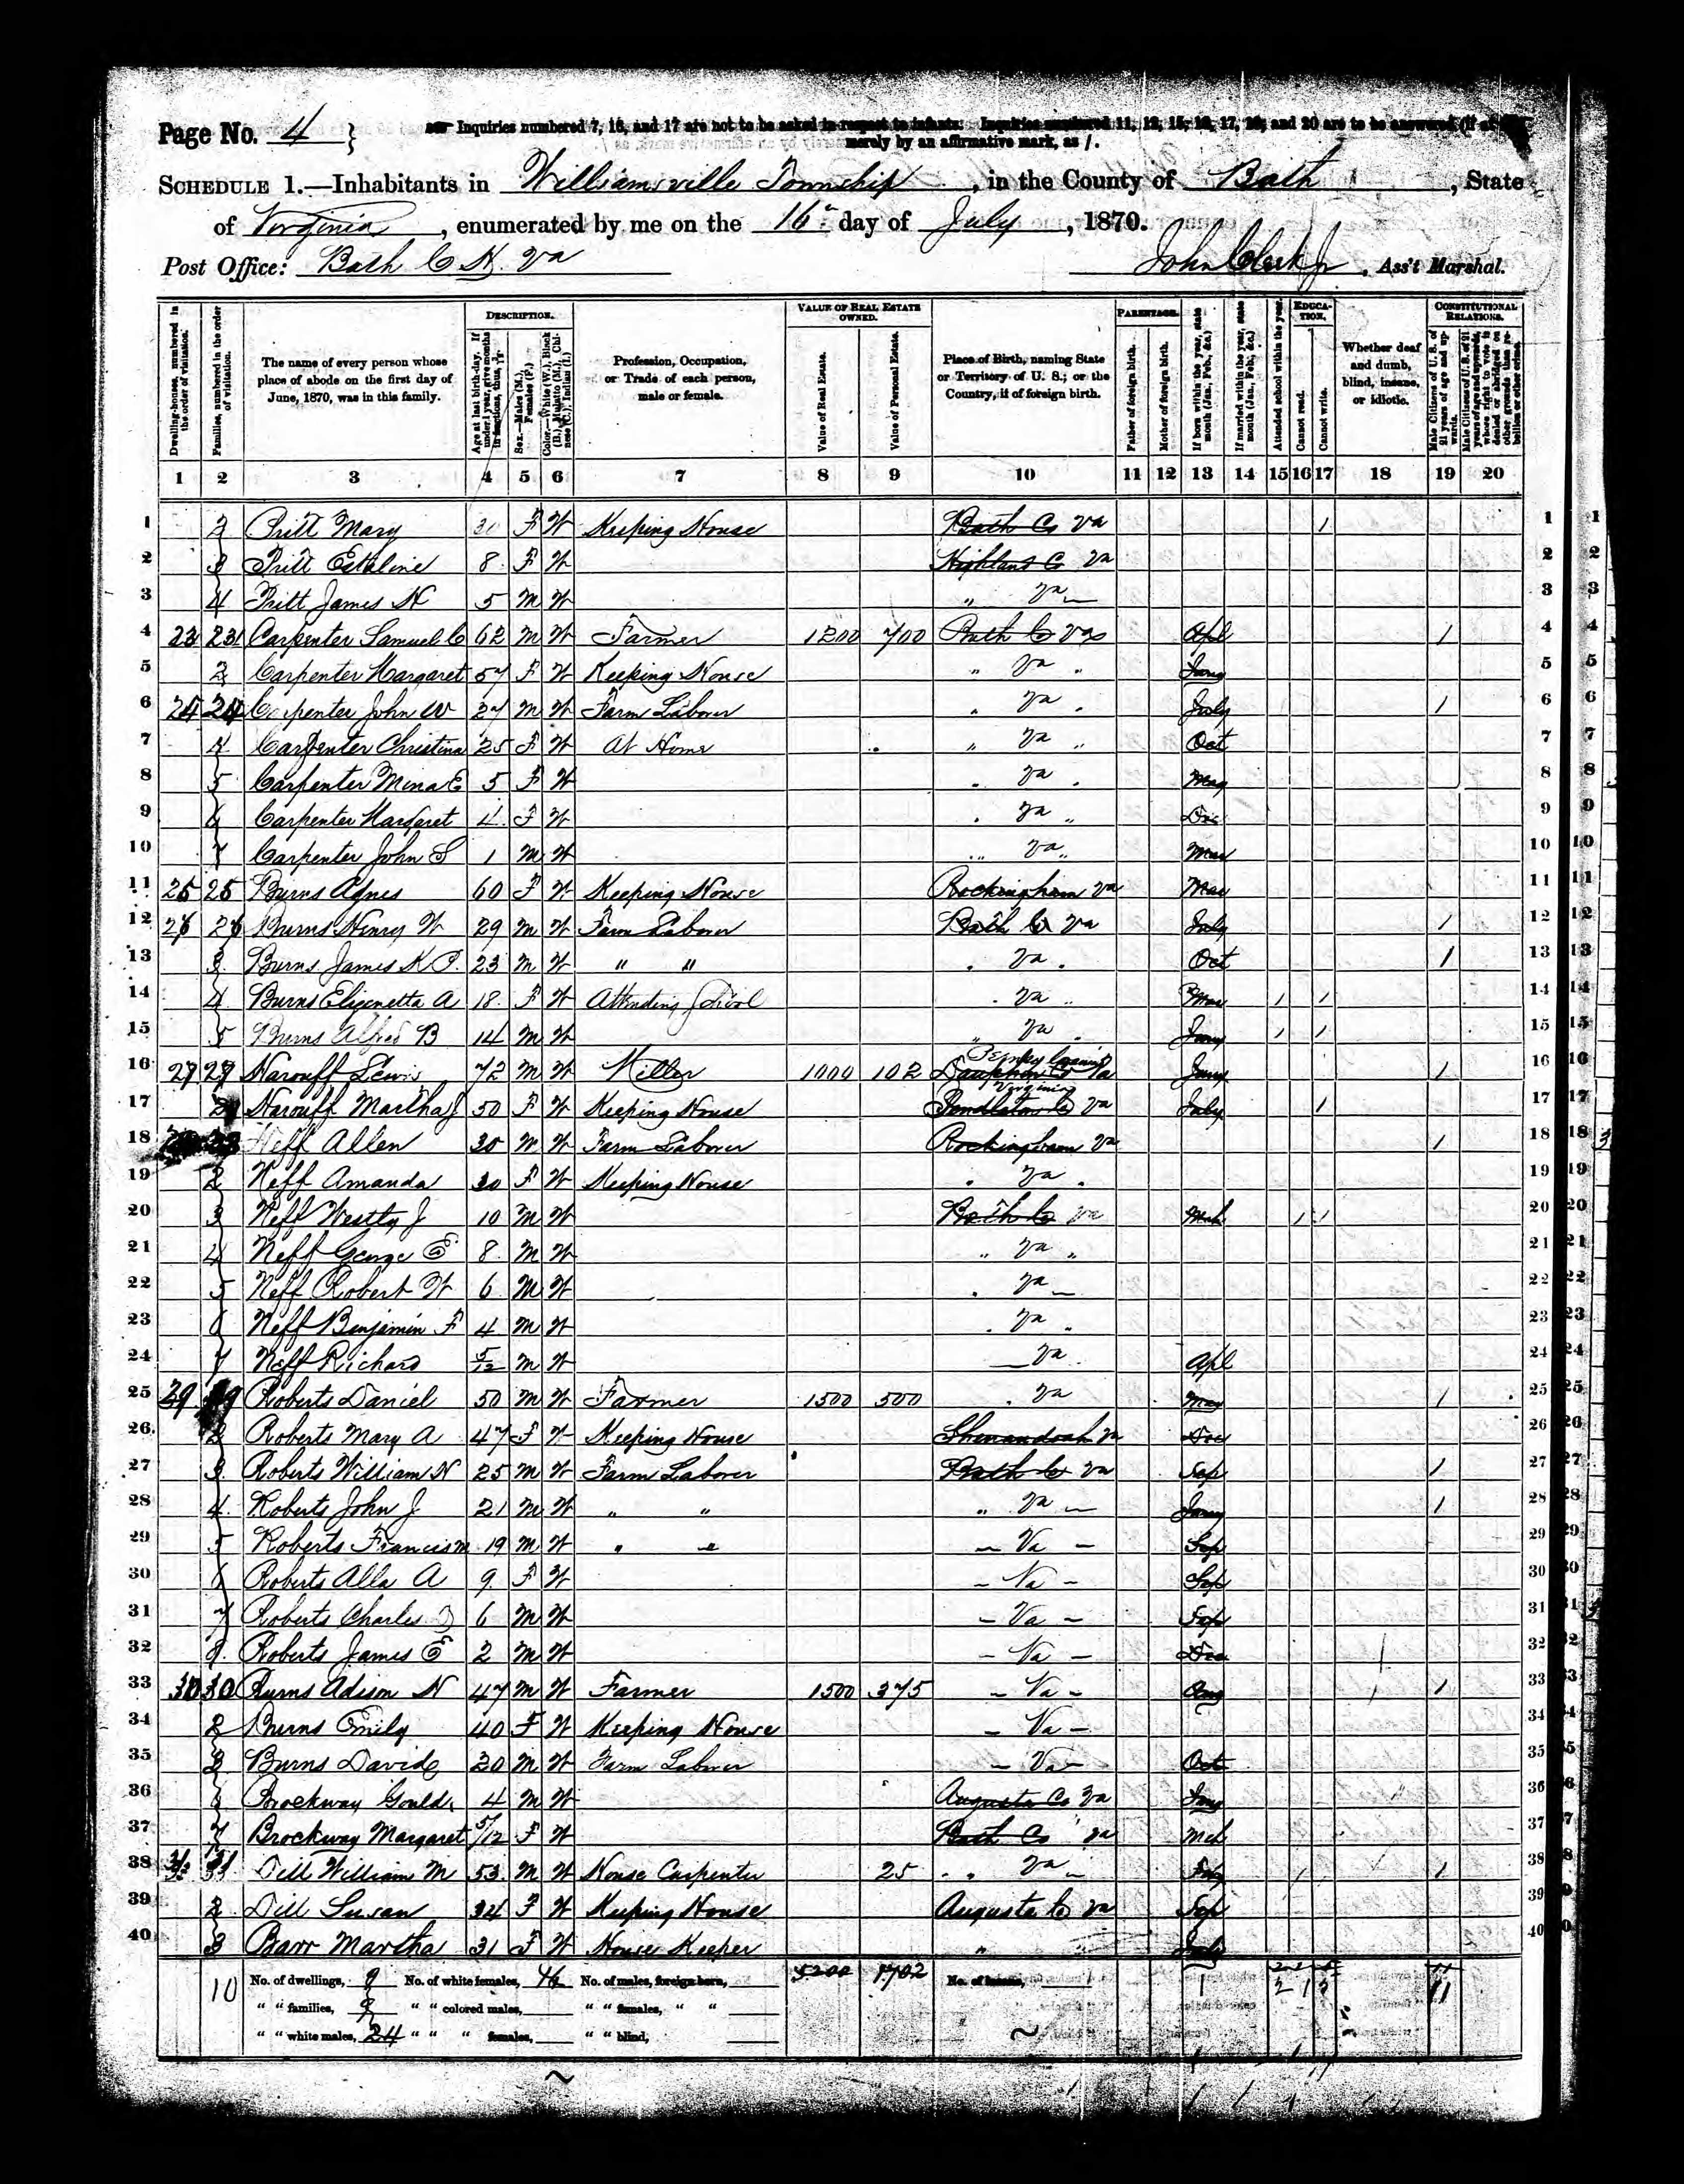 Page No. 4
Inquiries numbered 7, 16, and 17 are not to be asked in respect to infants. Inquiries numbered 11, 12, 15, 16, 17, 19, and 20 are to be answered (if at
merely by an affirmative mark, as /.
SCHEDULE 1.—Inhabitants in Williamsville Township, in the County of Bath, State
of Virginia, enumerated by me on the 16" day of July, 1870.
Post Office: Bath C H. Va
John Clark Jr, Ass't Marshal.
Dwelling-houses, numbered in the order of visitation.
Families, numbered in the order of visitation.
The name of every person whose place of abode on the first day of June, 1870, was in this family.
DESCRIPTION.
Age at last birth-day. If under 1 year, give months in fractions, thus,
Sex.—Males (M.), Females (F.)
Color.—White (W.), Black (B.), Mulatto (M.), Chinese (C.), Indian (I.)
Profession, Occupation, or Trade of each person, male or female.
VALUE OF REAL ESTATE OWNED.
Value of Real Estate.
Value of Personal Estate.
Place of Birth, naming State or Territory of U. S.; or the Country, if of foreign birth.
PARENTAGE.
Father of foreign birth.
Mother of foreign birth.
If born within the year, state month (Jan., Feb., &c.)
If married within the year, state month (Jan., Feb., &c.)
Attended school within the year.
EDUCATION.
Cannot read.
Cannot write.
Whether deaf and dumb, blind, insane, or idiotic.
CONSTITUTIONAL RELATIONS.
Male Citizens of U. S. of 21 years of age and upwards.
Male Citizens of U. S. of 21 years of age and upwards, whose right to vote is denied or abridged on other grounds than rebellion or other crime.
1 2 3 4 5 6 7 8 9 10 11 12 13 14 15 16 17 18 19 20
1 2 Pritt Mary F W Keeping House Bath Co Va / 1
2 3 Pritt Estaline 8 F W Highland Co Va 2
3 4 Pritt James H 5 M W " Va 3
4 23 23 Carpenter Samuel C 62 M W Farmer 1200 700 Bath Co Va Apl / 4
5 2 Carpenter Margaret 57 F W Keeping House " Va " Jany 5
6 24 24 Carpenter John W 27 M W Farm Laborer " Va " July / 6
7 4 Carpenter Christina 25 F W At Home " Va " Oct 7
8 5 Carpenter Mina E 5 F W " Va " May 8
9 6 Carpenter Margaret 4 F W " Va " Dec 9
10 7 Carpenter John S 1 M W " Va " Mar 10
11 25 25 Burns Agnes 60 F W Keeping House Rockingham Va Mar 11
12 26 26 Burns Henry W 29 M W Farm Laborer Bath Co Va July / 12
13 3 Burns James K P. 23 M W " " " Va " Oct / 13
14 4 Burns Elizenetta A 18 F W Attending School " Va " Mar / / 14
15 5 Burns Alfred B 14 M W " Va " Jany / / 15
16 27 27 Harouff Lewis 72 M W Miller 1000 102 Dauphin Co Pa Jany / 16
17 2 Harouff Martha J 50 F W Keeping House Virginia Pendleton Co Va July / 17
18 Neff Allen 30 M W Farm Laborer Rockingham Va / 18
19 2 Neff Amanda 30 F W Keeping House " Va " 19
20 3 Neff Westly J 10 M W Bath Co Va Mch / / 20
21 4 Neff George E 8 M W " Va " 21
22 5 Neff Robert W 6 M W " Va 22
23 6 Neff Benjamin F 4 M W " Va " 23
24 7 Neff Richard 5/12 M W Va Apl 24
25 29 29 Roberts Daniel 50 M W Farmer 1500 500 " Va May / 25
26 2 Roberts Mary A 47 F W Keeping House Shenandoah Va Dec 26
27 3 Roberts William H 25 M W Farm Laborer Bath Co Va Sep / 27
28 4 Roberts John J 21 M W " " " Va Jany / 28
29 5 Roberts Francis M 19 M W " " Va Sep 29
30 6 Roberts Alla A 9 F W Va Sep 30
31 7 Roberts Charles 6 M W Va Sep 31
32 8 Roberts James E 2 M W Va Dec 32
33 30 30 Burns Adison H 47 M W Farmer 1500 375 Va Aug / 33
34 2 Burns Emily 40 F W Keeping House Va 34
35 3 Burns David C 20 M W Farm Laborer Va Oct 35
36 Brockway Gould 4 M W Augusta Co Va Jany 36
37 7 Brockway Margaret 5/12 F W Bath Co Va Mch 37
38 31 31 Dill William M 53 M W House Carpenter 25 " Va / / 38
39 2 Dill Susan 34 F W Keeping House Augusta Co Va Sep 39
40 3 Barr Martha 31 F W House Keeper " July 40
10 No. of dwellings, 9 No. of white females, 16 No. of males, foreign born, 5200 1702 No. of insane, 1 2 1 11
" " families, 9 " " colored males, " " females, " "
" " white males, 24 " " " females, " " blind,